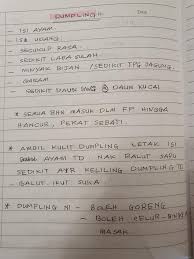 DUMPLING
- ISI AYAM
- ISI UDANG
- SECUKUP RASA.
- SEDIKIT LADA SULAH
- MINYAK BIJAN / SEDIKIT TPG JAGUNG
- GARAM
- SEDIKIT DAUN @ DAUN KUCAI
* SEMUA BHN MASUK DLM FP HINGGA
HANCUR, PERAT SEBATI.
* AMBIL KULIT DUMPLING LETAK ISI
AYAM TD NAK BALUT SAPU
SEDIKIT AIR KELILING DUMPLING TD
- BALUT IKUT SUKA
* DUMPLING NI - BOLEH GORENG
- BOLEH CELUR -
MASAK